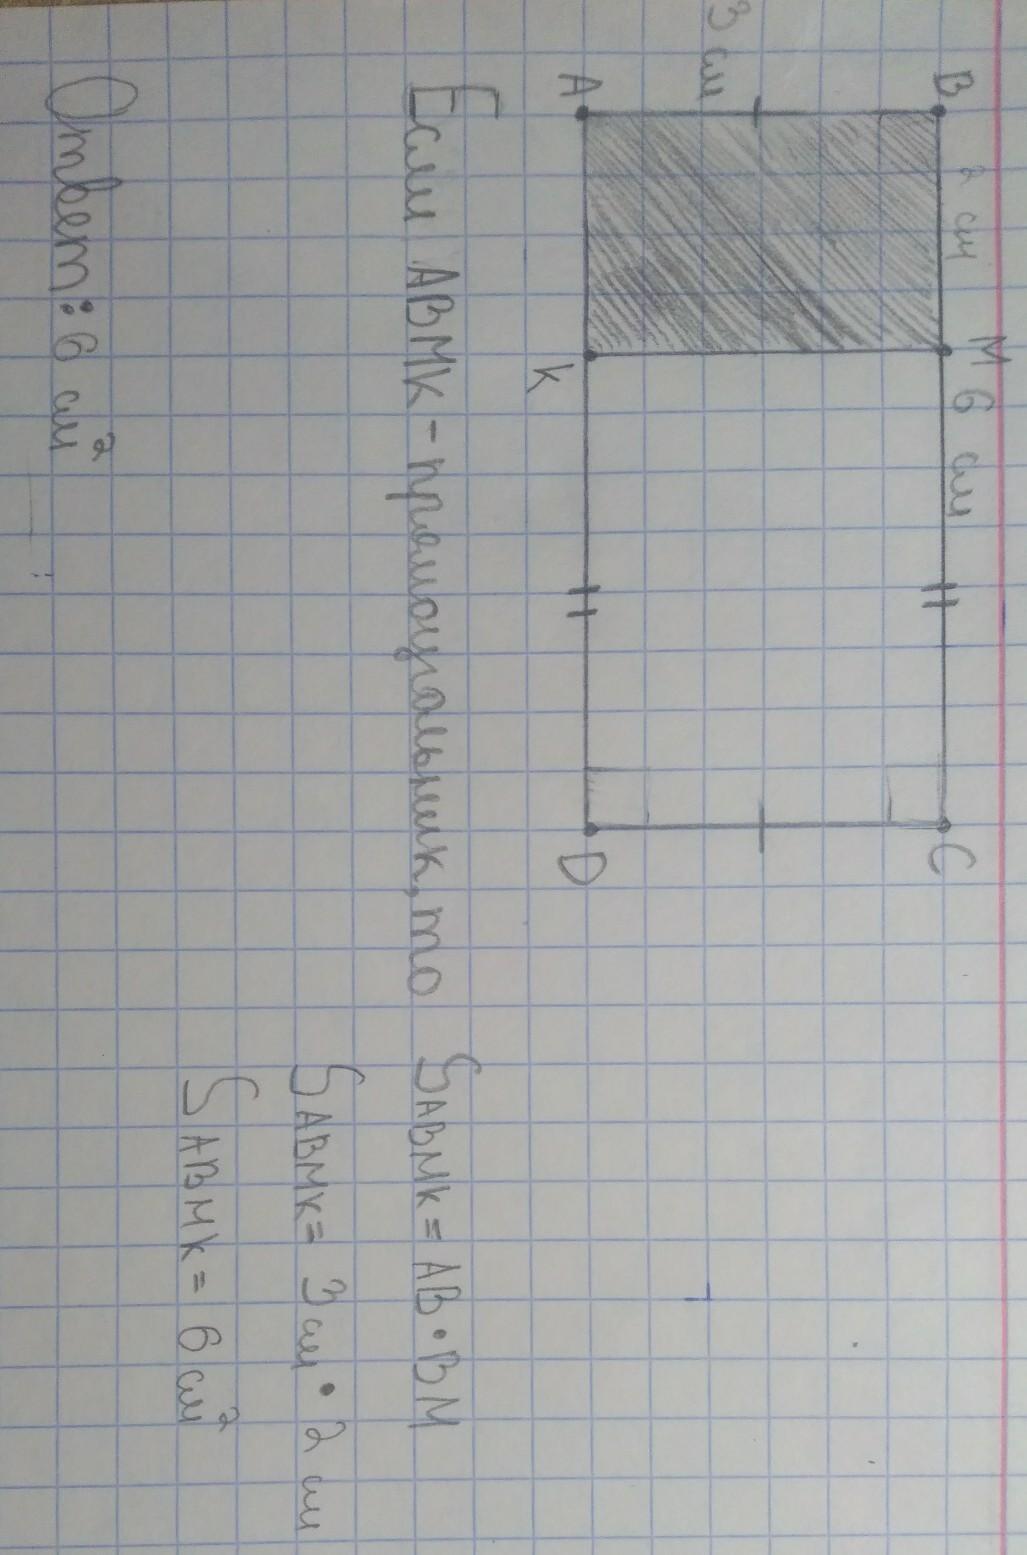 B 2 см M 6 см C
3 см
A K D
Если ABMK - прямоугольник, то SABMK = AB · BM
SABMK = 3 см · 2 см
SABMK = 6 см²
Ответ: 6 см²